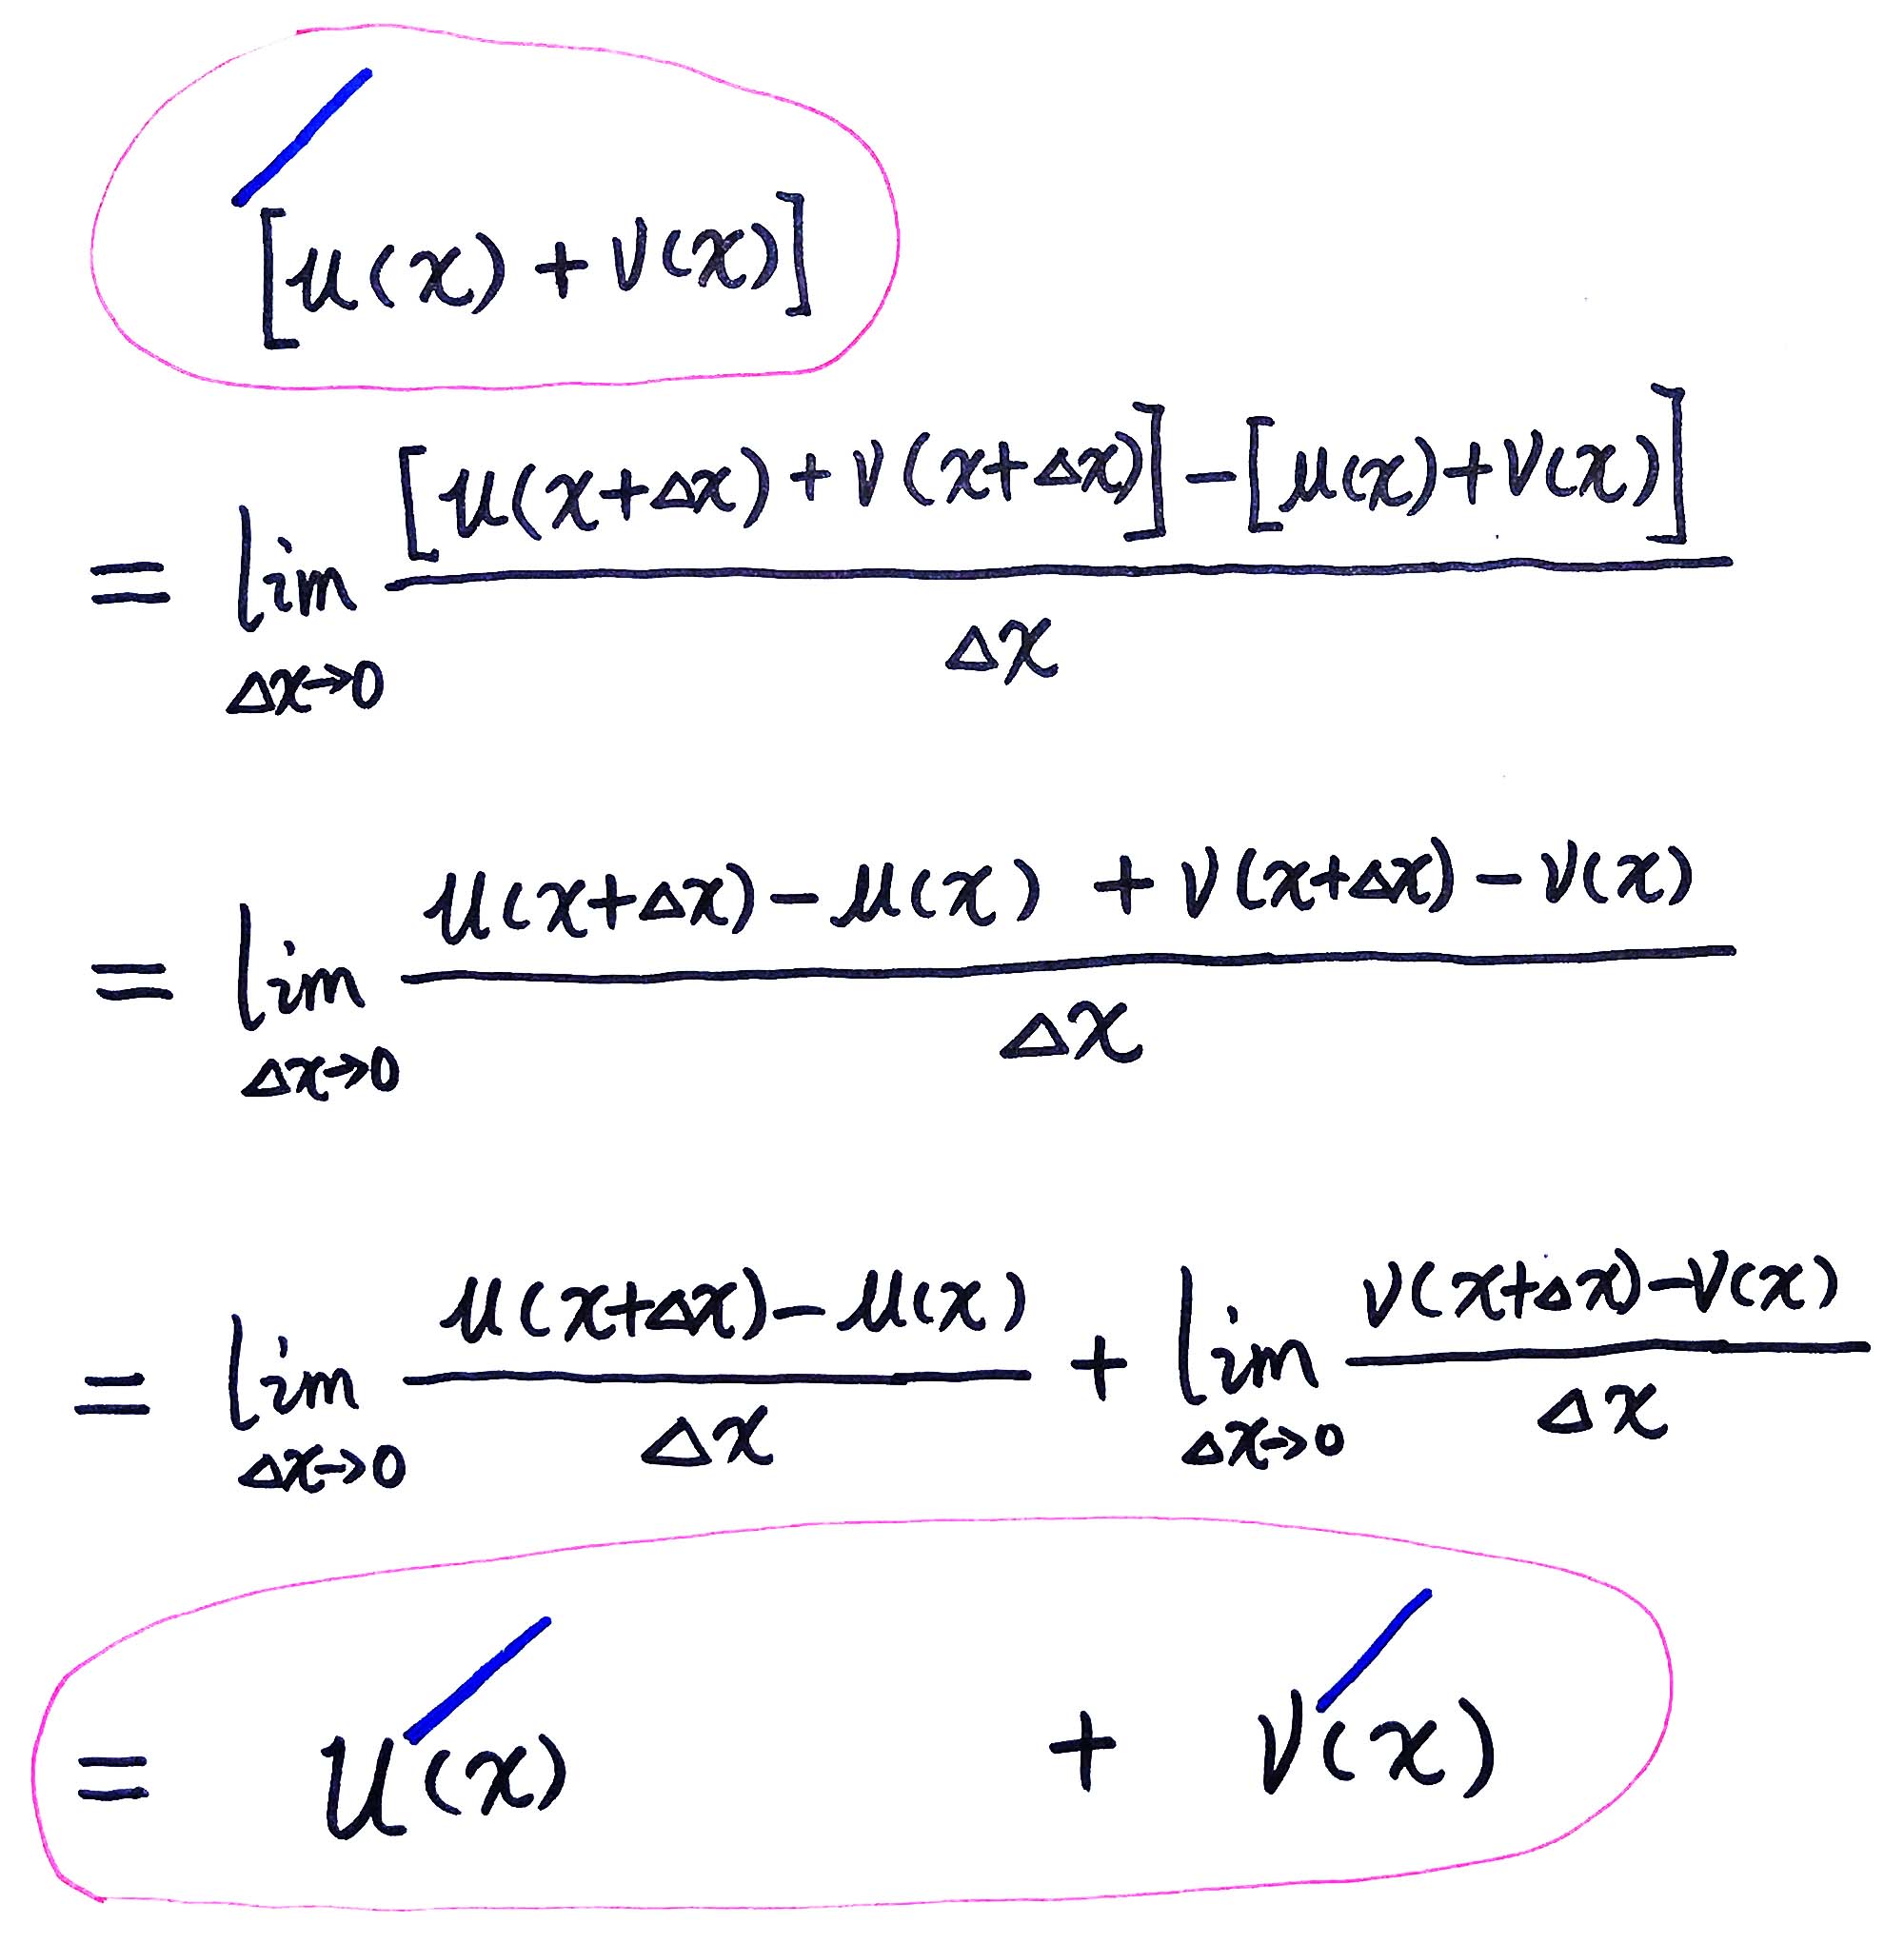 ′[u(x) + v(x)]
= lim_{Δx→0} \frac{[u(x+Δx) + v(x+Δx)] - [u(x) + v(x)]}{Δx}
= lim_{Δx→0} \frac{u(x+Δx) - u(x) + v(x+Δx) - v(x)}{Δx}
= lim_{Δx→0} \frac{u(x+Δx) - u(x)}{Δx} + lim_{Δx→0} \frac{v(x+Δx) - v(x)}{Δx}
= u′(x) + v′(x)